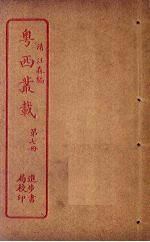 清 汪森編
粵西叢載
第七冊
進步書
局校印